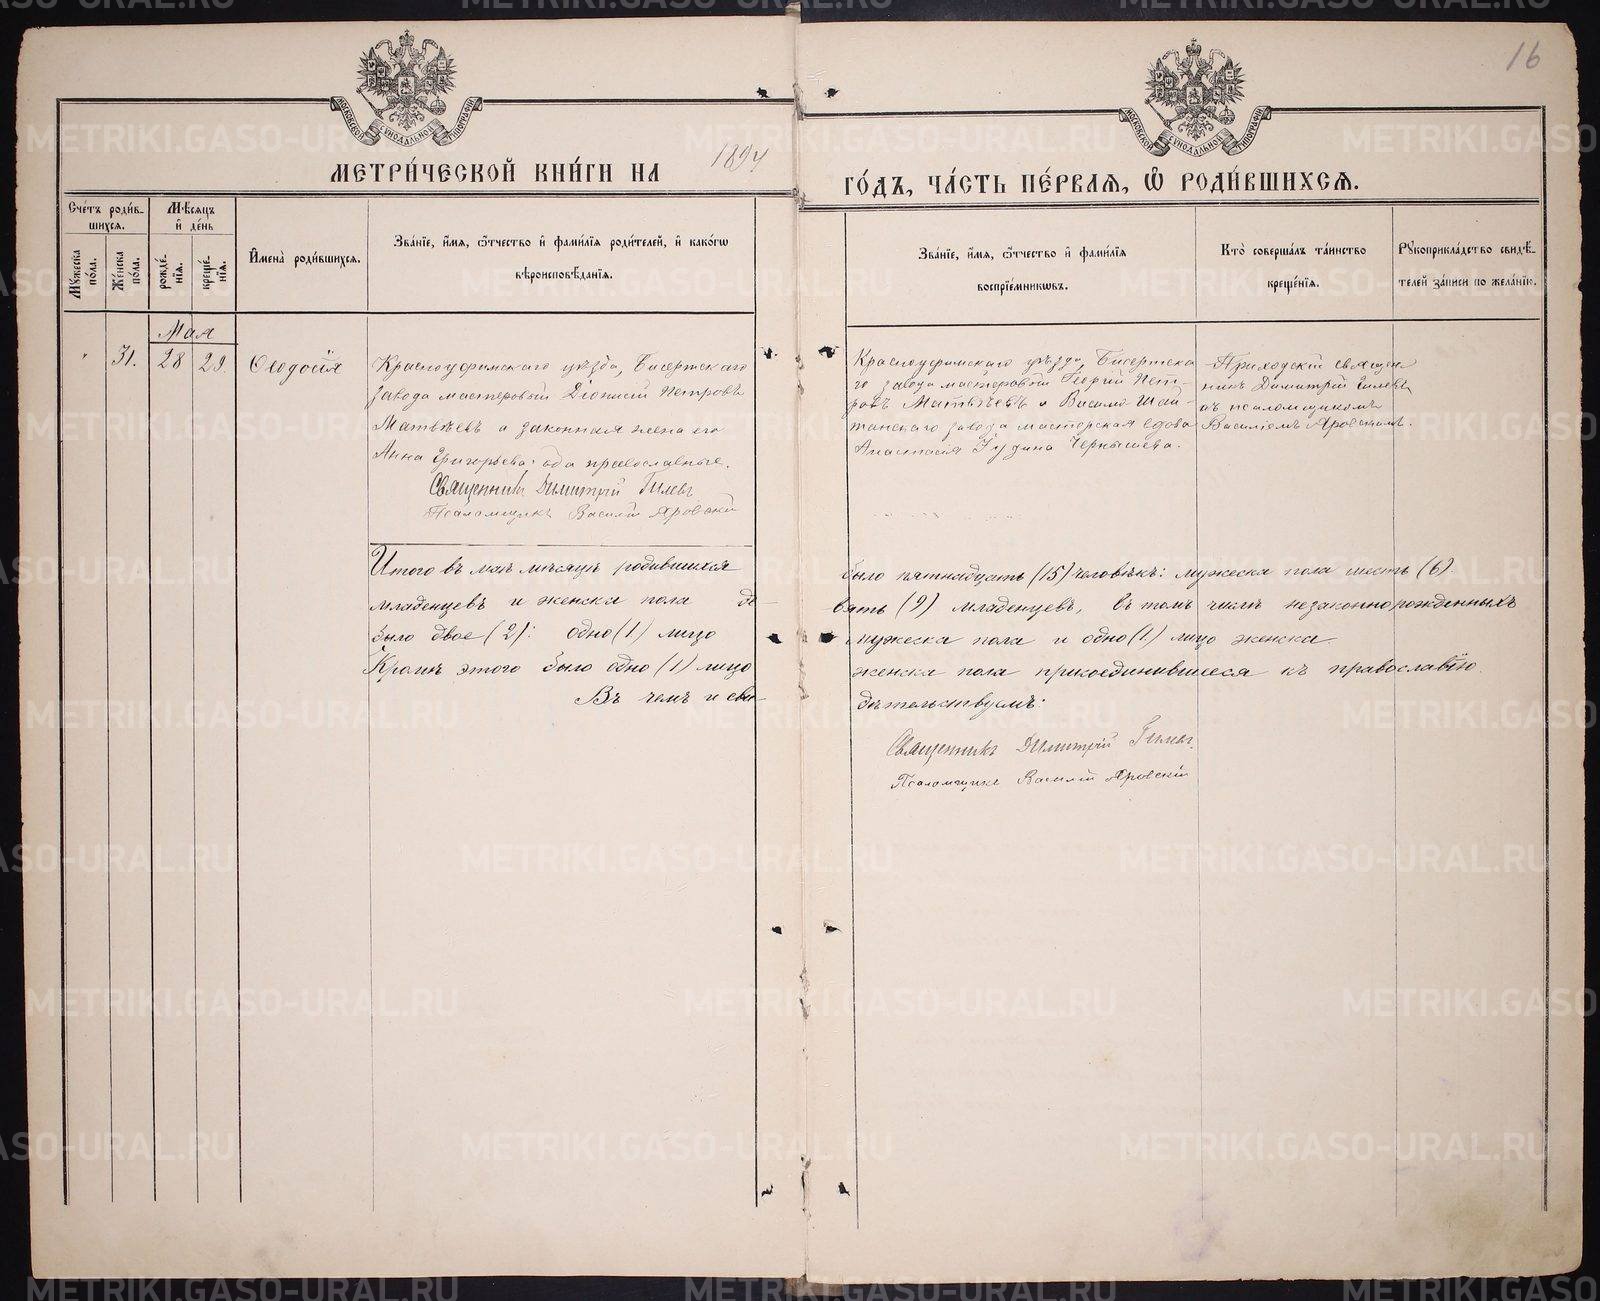 16
МОСКОВСКОЙ СѴНОДАЛЬНОЙ ТИПОГРАФІИ
МОСКОВСКОЙ СѴНОДАЛЬНОЙ ТИПОГРАФІИ
МЕТРИ́ЧЕСКОЙ КНИ́ГИ НА 1894 ГО́ДЪ, ЧА́СТЬ ПЕ́РВАЯ, Ѽ РОДИ́ВШИХСЯ.
Сче́тъ роди́вшихся.
Му́жеска по́ла.
Же́нска по́ла.
Мѣ́сяцъ и҆ де́нь
рожде́нїѧ.
креще́нїѧ.
И҆мена̀ роди́вшихся.
Зва́нїе, и҆́мѧ, ѻ҆́тчество и҆ фами́лїѧ роди́телей, и҆ како́гѡ
вѣроисповѣ́данїѧ.
Зва́нїе, и҆́мѧ, ѻ҆́тчество и҆ фами́лїѧ
воспрїе́мникѡвъ.
Кто̀ соверша́лъ та́инство
креще́нїѧ.
Рꙋкоприкла́дство свидѣ́-
телей за́писи по жела́нїю.
Мая
" 31. 28 29. Ѳеодосія
Красноуфимскаго уѣзда, Бисертскаго
завода мастеровой Діонисій Петровъ
Матвѣевъ и законная жена его
Анна Григорьева: оба православные.
Священникъ Димитрій Гилевъ
Псаломщикъ Василій Яровскій
Красноуфимскаго уѣзда, Бисертска
го завода мастеровой Георгій Пет-
ровъ Матвѣевъ и Васильо-Шай-
танскаго завода мастерская вдова
Анастасія Іудина Чернышева.
Приходскій священ
никъ Димитрій Гилевъ
съ псаломщикомъ
Василіемъ Яровскимъ.
Итого въ маѣ мѣсяцѣ родившихся было пятнадцать (15) человѣкъ: мужеска пола шесть (6)
младенцевъ и женска пола де- вять (9) младенцевъ, въ томъ числѣ незаконнорожденныхъ
было двое (2): одно (1) лицо мужеска пола и одно (1) лицо женска
Кромѣ этого было одно (1) лицо женска пола присоединившееся къ православію.
Въ чемъ и сви- дѣтельствуемъ:
Священникъ Димитрій Гилевъ.
Псаломщикъ Василій Яровскій
METRIKI.GASO-URAL.RU